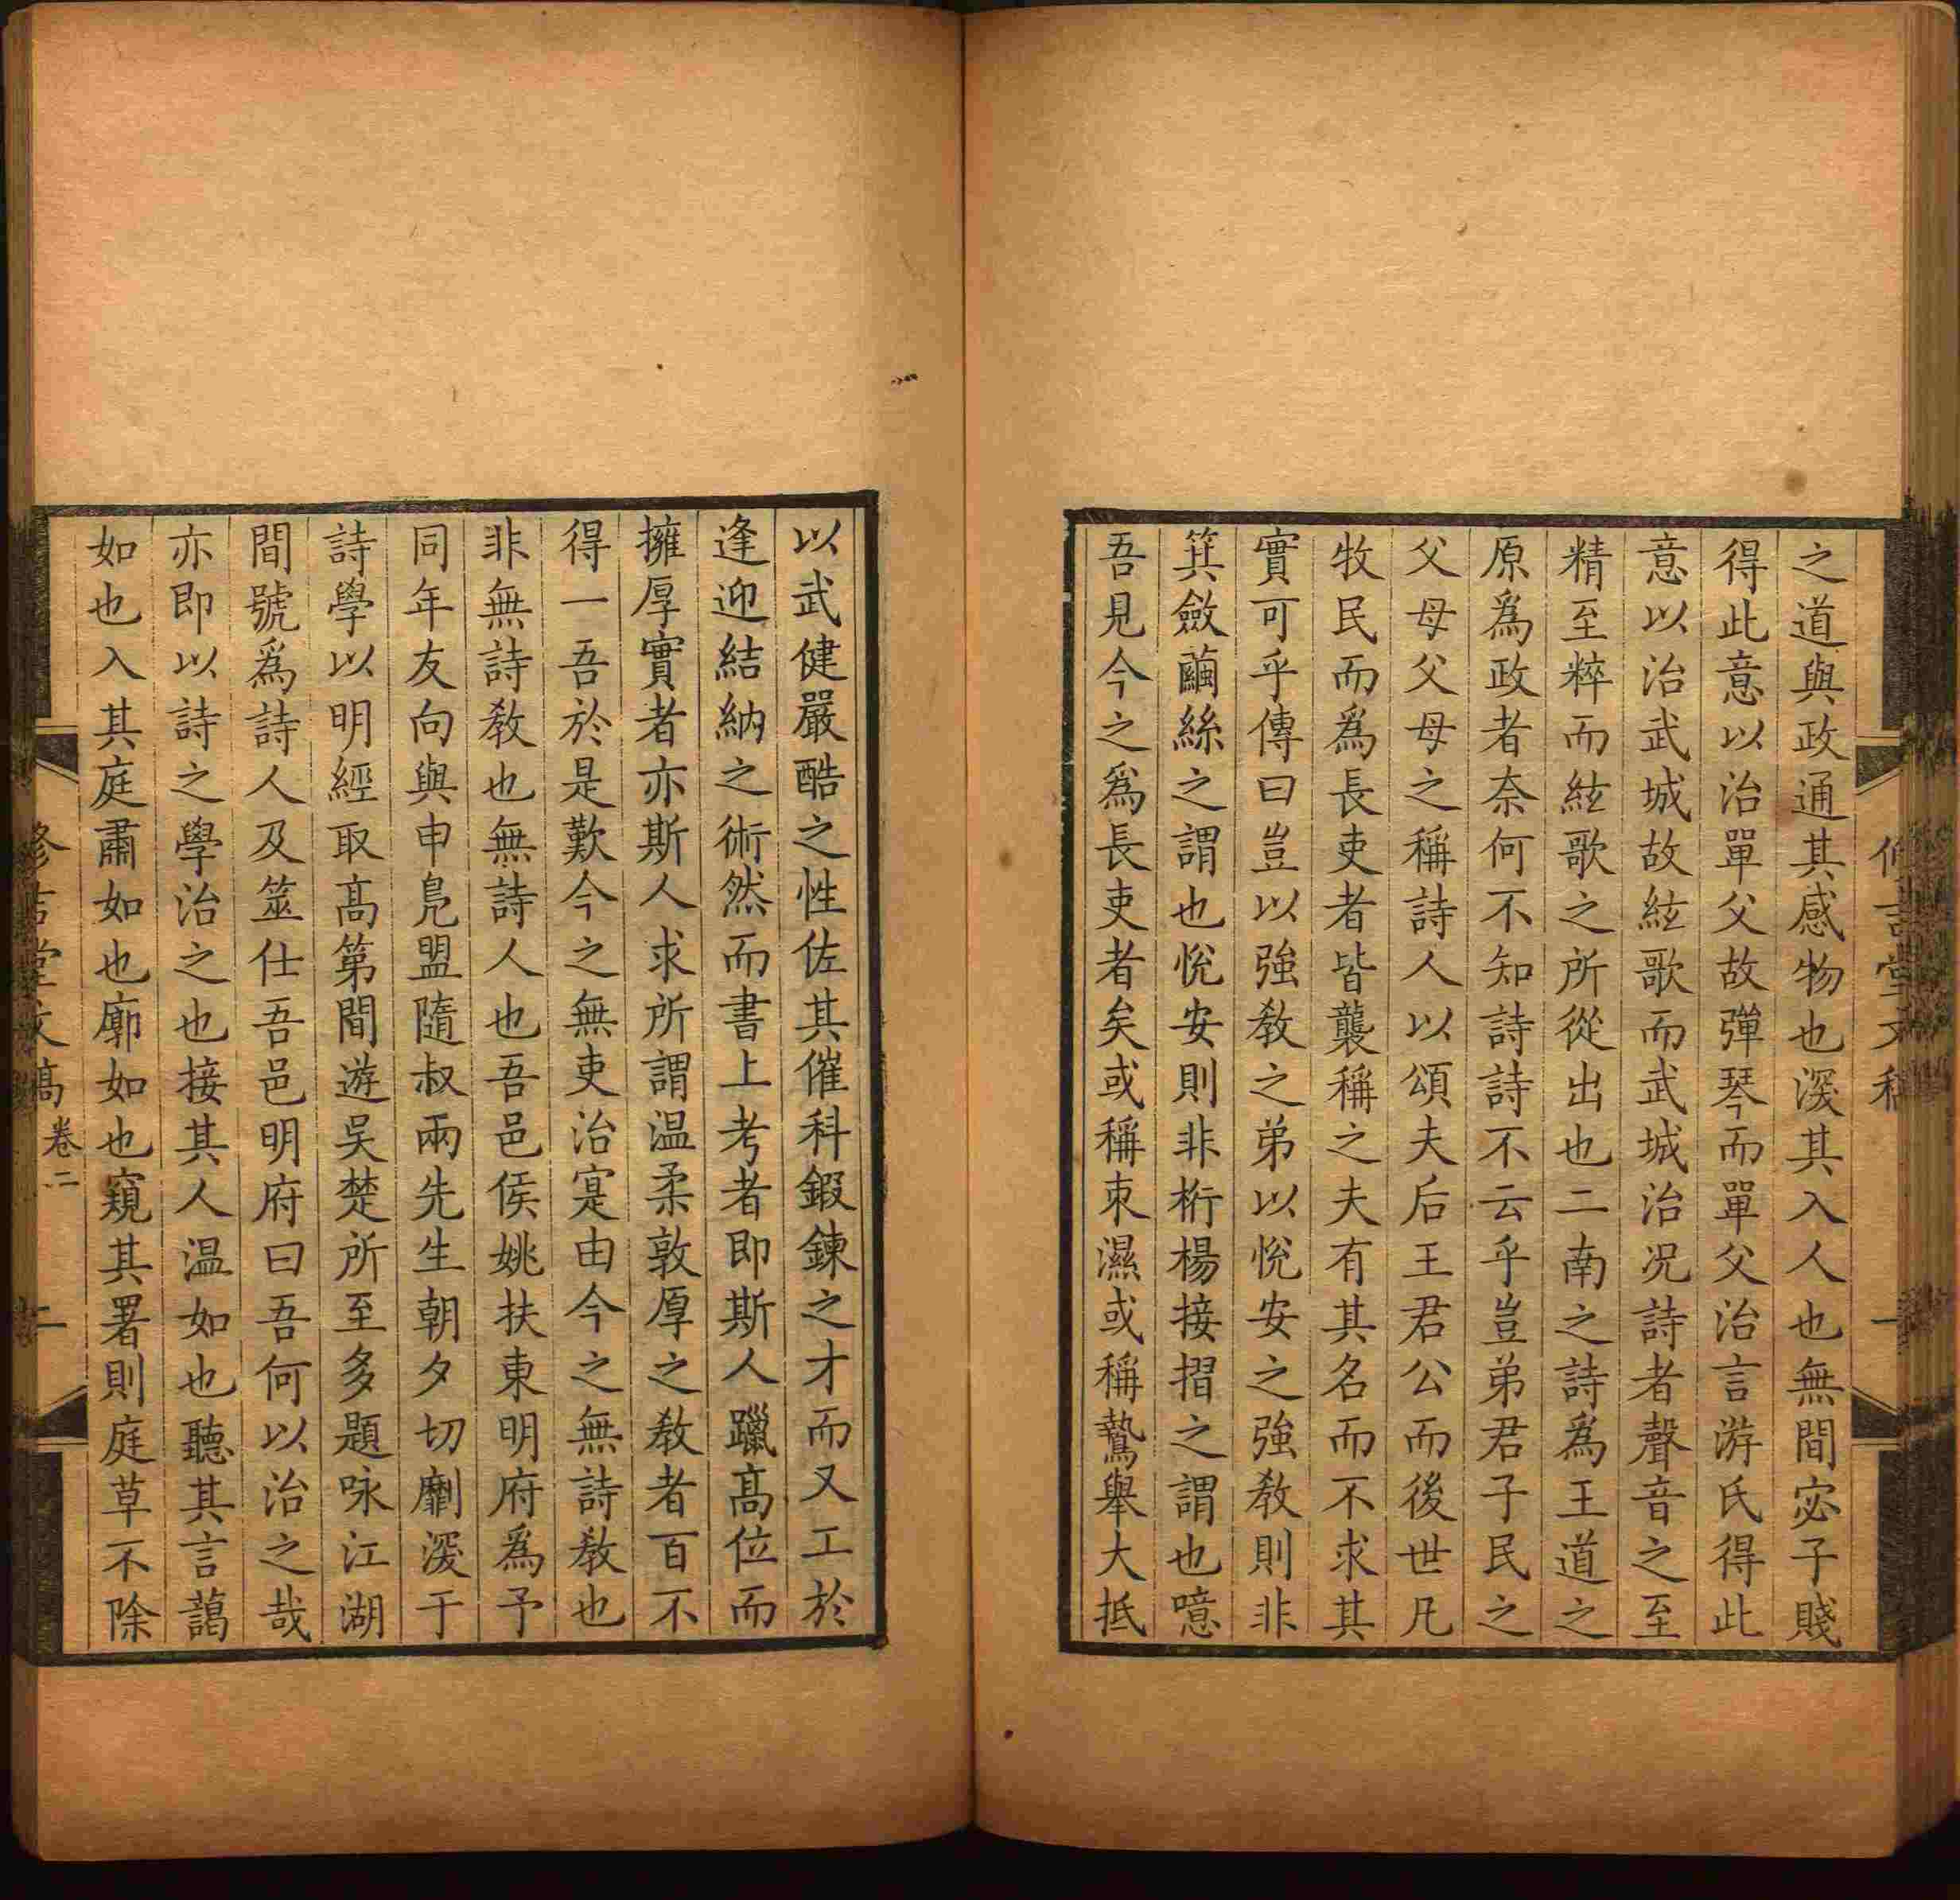 之道與政通其感物也深其入人也無間宓子賤
得此意以治單父故彈琴而單父治言游氏得此
意以治武城故絃歌而武城治况詩者聲音之至
精至粹而絃歌之所從出也二南之詩爲王道之
原爲政者奈何不知詩詩不云乎豈弟君子民之
父母父母之稱詩人以頌夫后王君公而後世凡
牧民而爲長吏者皆襲稱之夫有其名而不求其
實可乎傳曰豈以強教之弟以悅安之強教則非
箕斂繭絲之謂也悅安則非桁楊接摺之謂也噫
吾見今之爲長吏者矣或稱朿濕或稱鷙舉大抵
以武健嚴酷之性佐其催科鍜鍊之才而又工於
逢迎結納之術然而書上考者即斯人躐高位而
擁厚實者亦斯人求所謂温柔敦厚之教者百不
得一吾於是歎今之無吏治寔由今之無詩教也
非無詩教也無詩人也吾邑侯姚扶東明府爲予
同年友向與申鳧盟隨叔兩先生朝夕切劘深于
詩學以明經取高第間游吳楚所至多題咏江湖
間號爲詩人及筮仕吾邑明府曰吾何以治之哉
亦即以詩之學治之也接其人温如也聽其言藹
如也入其庭肅如也廓如也窺其署則庭草不除
修吉堂文稿 卷二
二